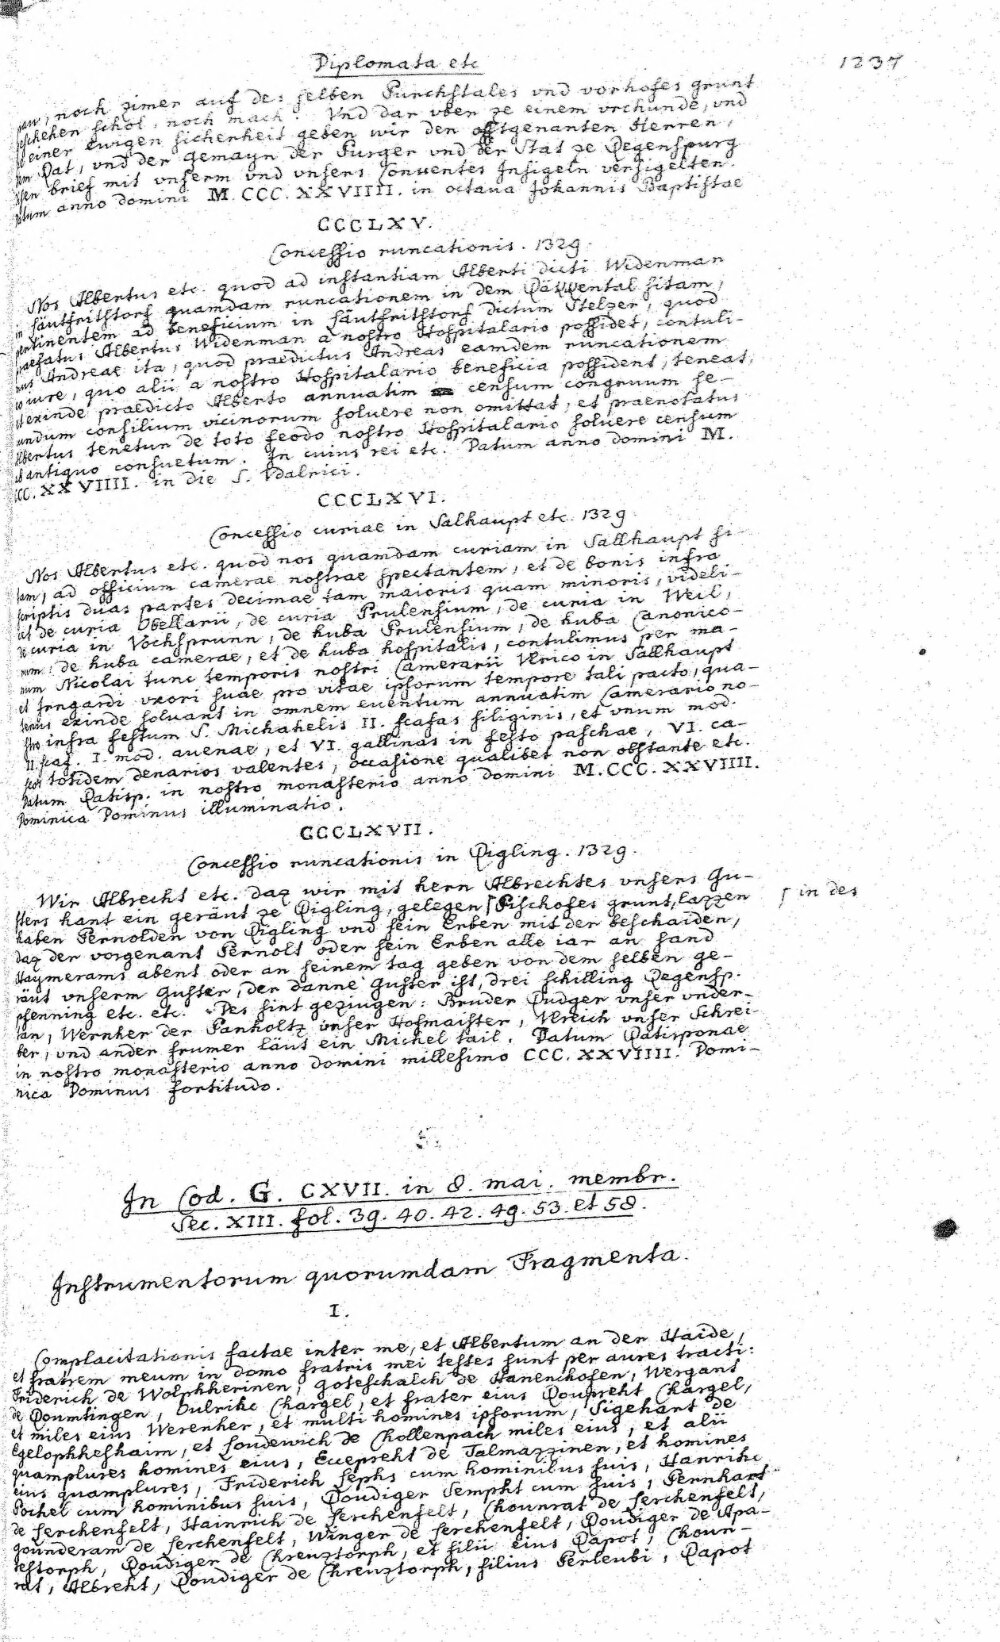 Diplomata etc
1237
noch zimer auf des selben Purchstales vnd vorhofes grunt
schol, noch mach. Vnd dar vber ze einem vrchunde, vnd
einer ewigen sicherheit geben wir den oftgenanten Herren,
Rat, vnd der gemayn der Purger vnd der Stat ze Regenspurg
brief mit vnserm vnd vnsers Conventes Insigeln versigelten.
anno domini M.CCC.XXVIIII. in octava Johannis Baptistae
CCCLXV.
Concessio runcationis. 1329.
Nos Albertus etc. quod ad instantiam Alberti dicti Widenman
in Säutfristorf quamdam runcationem in dem sitam,
pertinentem ad beneficium in Säutfristorf dictum Stelzer, quod
praefatus Albertus Widenman a nostro Hospitalario possidet, contuli-
mus Andreae ita, quod praedictus Andreas eamdem runcationem
iure, quo alii a nostro Hospitalario beneficia possident, teneat,
et exinde praedicto Alberto annuatim censum congruum se-
cundum consilium vicinorum soluere non omittat, et praenotatus
Albertus tenetur de toto feodo nostro Hospitalario soluere censum
ab antiquo consuetum. In cuius rei etc. Datum anno domini M.
CCC.XXVIIII. in die S. Vdalrici.
CCCLXVI.
Concessio curiae in Salhaupt etc. 1329.
Nos Albertus etc. quod nos quamdam curiam in Sallhaupt si-
tam, ad officium camerae nostrae spectantem, et de bonis infra
scriptis duas partes decimae tam maioris quam minoris, videli-
cet de curia Obellarii, de curia Prulensium, de curia in Weil,
de curia in Vochsprunn, de huba Prulensium, de huba Canonico-
rum, de huba camerae, et de huba hospitalis, contulimus per ma-
num Nicolai tunc temporis nostri Camerarii Vlrico in Sallhaupt
et Irngardi vxori suae pro vitae ipsorum tempore tali pacto, qua-
tenus exinde soluant in omnem eventum annuatim Camerario no-
stro infra festum S. Michahelis II. scafas siliginis, et vnum mod.
II. scaf. I. mod. auenae, et VI. gallinas in festo paschae, VI. ca-
seos totidem denarios valentes, occasione qualibet non obstante etc.
Datum Ratisp. in nostro monasterio anno domini M.CCC.XXVIIII.
Dominica Dominus illuminatio.
CCCLXVII.
Concessio runcationis in Rigling. 1329.
Wir Albrecht etc. daz wir mit hern Albrechtes vnsers Gu-
sters hant ein geräut ze Rigling, gelegen ⌈ Pischofes grunt, lazzen
⌈ in des
haben Pernolden von Rigling vnd sein Erben mit der beschaiden,
daz der vorgenant Pernolt oder sein Erben alle iar an sand
Haymerams abent oder an seinem tag geben von dem selben ge-
räut vnserm Guster, der danne Guster ist, drei schilling Regensp.
pfenning etc. etc. Des sint gezivgen: Bruder Rudger vnser vnder-
tan, Wernher der Panholtz vnser Hofmaister, Vlreich vnser Schrei-
ber, vnd ander frumer läut ein Michel tail. Datum Ratisponae
in nostro monasterio anno domini millesimo CCC.XXVIIII. Domi-
nica Dominus fortitudo.
In Cod. G. CXVII. in 8. mai. membr.
Sec. XIII. fol. 39. 40. 42. 49. 53. et 58.
Instrumentorum quorumdam Fragmenta.
I.
Complacitationis factae inter me, et Albertum an der Haide,
et fratrem meum in domo fratris mei testes sunt per aures tracti:
Friderich de Wolphherinen, Goteschalch de Hanenchofen, Wergant
de Roumtingen, Oulrihc Chargel, et frater eius Roupreht Chargel,
et miles eius Werenher, et multi homines ipsorum, Sigehart de
Egelophheshaim, et Loudewich de Chollenpach miles eius, et alii
quamplures homines eius, Eccepreht de Talmazzinen, et homines
eius quamplures, Friderich Sephs cum hominibus suis, Hainrihc
Pochel cum hominibus suis, Roudiger Sempht cum suis, Pernhart
de Lerchenfelt, Hainrich de Lerchenfelt, Chounrat de Lerchenfelt,
Gounderam de Lerchenfelt, Winger de Lerchenfelt, Roudiger de Apa-
testorph, Roudiger de Chreuztorph, et filii eius Rapot, Choun-
rat, Albreht, Roudiger de Chreuztorph, filius Perleubi, Rapot